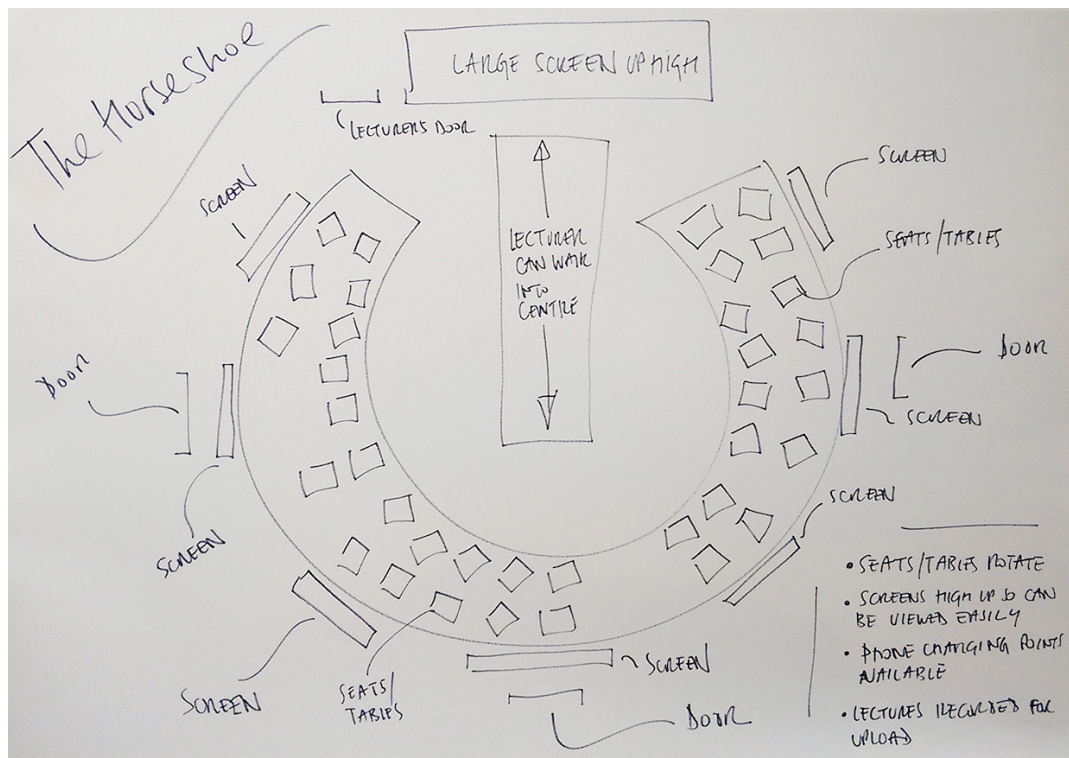 The HorseShoe
LARGE SCREEN UP HIGH
LECTURERS DOOR
SCREEN
SCREEN
SEATS/TABLES
LECTURER
CAN WALK
INTO
CENTRE
DOOR
DOOR
SCREEN
SCREEN
SCREEN
SCREEN
SEATS/
TABLES
SCREEN
DOOR
• SEATS/TABLES ROTATE
• SCREENS HIGH UP SO CAN
BE VIEWED EASILY
• PHONE CHARGING POINTS
AVAILABLE
• LECTURES RECORDED FOR
UPLOAD